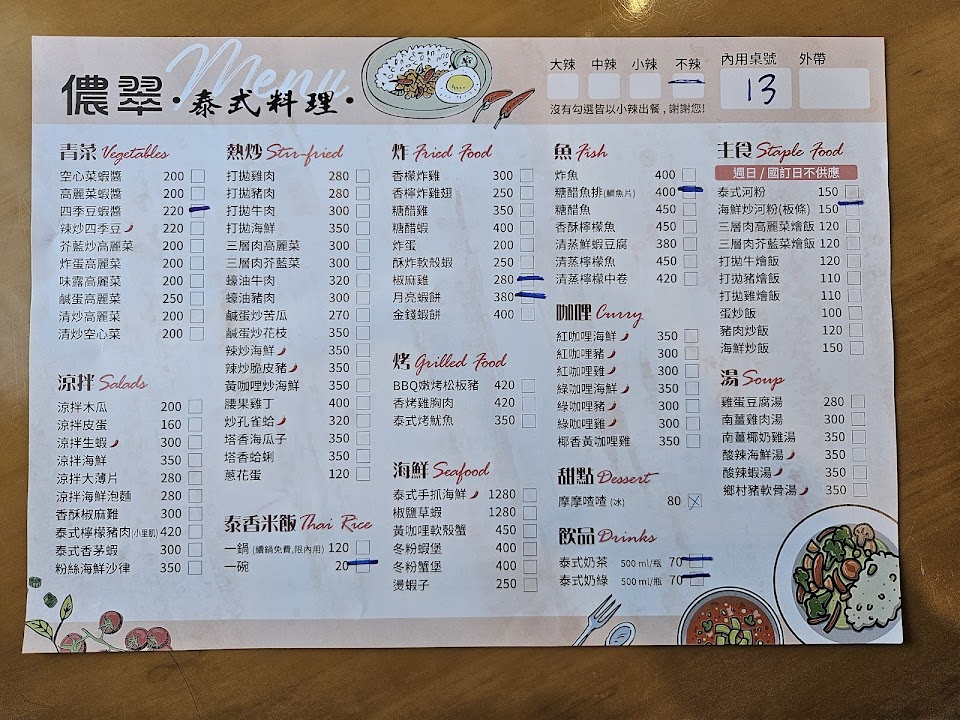 儂翠・泰式料理・
Menu
大辣 中辣 小辣 不辣 內用桌號 外帶
13
沒有勾選皆以小辣出餐,謝謝您!
青菜 Vegetables
空心菜蝦醬 200
高麗菜蝦醬 200
四季豆蝦醬 220
辣炒四季豆 220
芥藍炒高麗菜 200
炸蛋高麗菜 200
味露高麗菜 200
鹹蛋高麗菜 250
清炒高麗菜 200
清炒空心菜 200
涼拌 Salads
涼拌木瓜 200
涼拌皮蛋 160
涼拌生蝦 300
涼拌海鮮 350
涼拌大薄片 280
涼拌海鮮泡麵 280
香酥椒麻雞 300
泰式檸檬豬肉(小里肌) 420
泰式香茅蝦 300
粉絲海鮮沙律 350
熱炒 Stir-fried
打拋雞肉 280
打拋豬肉 280
打拋牛肉 300
打拋海鮮 350
三層肉高麗菜 300
三層肉芥藍菜 300
蠔油牛肉 320
蠔油豬肉 300
鹹蛋炒苦瓜 270
鹹蛋炒花枝 350
辣炒海鮮 350
辣炒脆皮豬 350
黃咖哩炒海鮮 350
腰果雞丁 400
炒孔雀蛤 320
塔香海瓜子 350
塔香蛤蜊 350
蔥花蛋 120
泰香米飯 Thai Rice
一鍋 (續鍋免費,限內用) 120
一碗 20
炸 Fried Food
香檬炸雞 300
香檸炸雞翅 250
糖醋雞 350
糖醋蝦 400
炸蛋 200
酥炸軟殼蝦 250
椒麻雞 280
月亮蝦餅 380
金錢蝦餅 400
烤 Grilled Food
BBQ嫩烤松板豬 420
香烤雞胸肉 420
泰式烤魷魚 350
海鮮 Seafood
泰式手抓海鮮 1280
椒鹽草蝦 1280
黃咖哩軟殼蟹 450
冬粉蝦堡 400
冬粉蟹堡 400
燙蝦子 250
魚 Fish
炸魚 400
糖醋魚排(鯛魚片) 400
糖醋魚 450
香酥檸檬魚 450
清蒸鮮蝦豆腐 380
清蒸檸檬魚 450
清蒸檸檬中卷 420
咖哩 Curry
紅咖哩海鮮 350
紅咖哩豬 300
紅咖哩雞 300
綠咖哩海鮮 350
綠咖哩豬 300
綠咖哩雞 300
椰香黃咖哩雞 350
甜點 Dessert
摩摩喳喳 (冰) 80
飲品 Drinks
泰式奶茶 500 ml/瓶 70
泰式奶綠 500 ml/瓶 70
主食 Staple Food
週日 / 國訂日不供應
泰式河粉 150
海鮮炒河粉(板條) 150
三層肉高麗菜燴飯 120
三層肉芥藍菜燴飯 120
打拋牛燴飯 120
打拋豬燴飯 110
打拋雞燴飯 110
蛋炒飯 100
豬肉炒飯 120
海鮮炒飯 150
湯 Soup
雞蛋豆腐湯 280
南薑雞肉湯 300
南薑椰奶雞湯 350
酸辣海鮮湯 350
酸辣蝦湯 350
鄉村豬軟骨湯 350